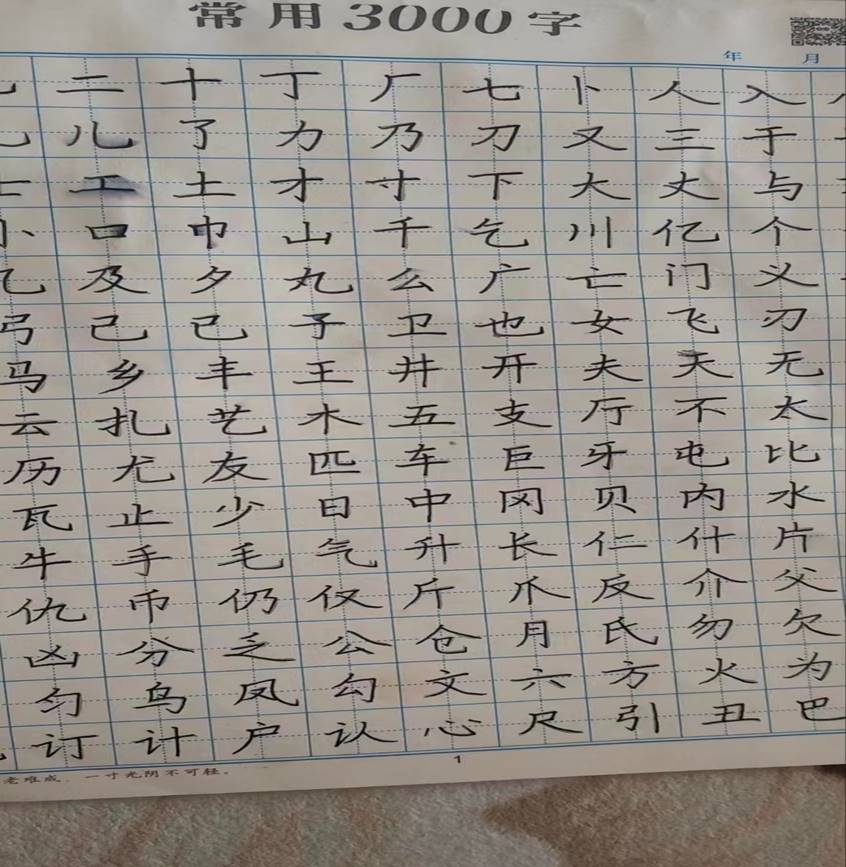 常用3000字
年 月
二 十 丁 厂 七 卜 人 入
儿 了 力 乃 刀 又 三 于
工 土 才 寸 下 大 丈 与
小 口 巾 山 千 乞 川 亿 个
及 夕 丸 么 广 亡 门 义
弓 己 已 子 卫 也 女 飞 刃
马 乡 丰 王 井 开 夫 天 无
云 扎 艺 木 五 支 厅 不 太
历 尤 友 匹 车 巨 牙 屯 比
瓦 止 少 日 中 冈 贝 内 水
牛 手 毛 气 升 长 仁 什 片
仇 币 仍 仅 斤 爪 反 介 父
凶 分 乏 公 仓 月 氏 勿 欠
匀 鸟 凤 勾 文 六 方 火 为
订 计 户 认 心 尺 引 丑 巴
1
老难成，一寸光阴不可轻。